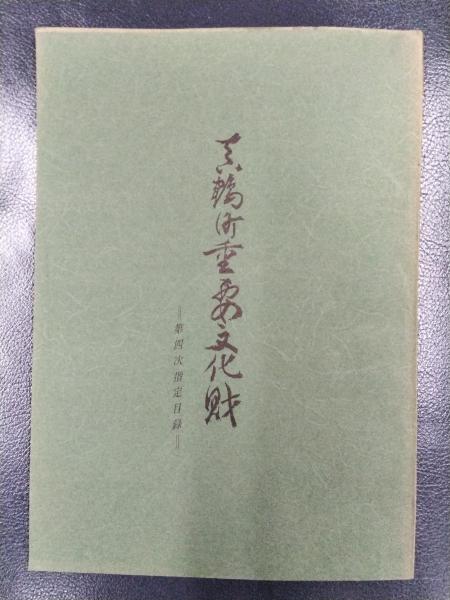 真鶴町重要文化財
＝第四次指定目録＝